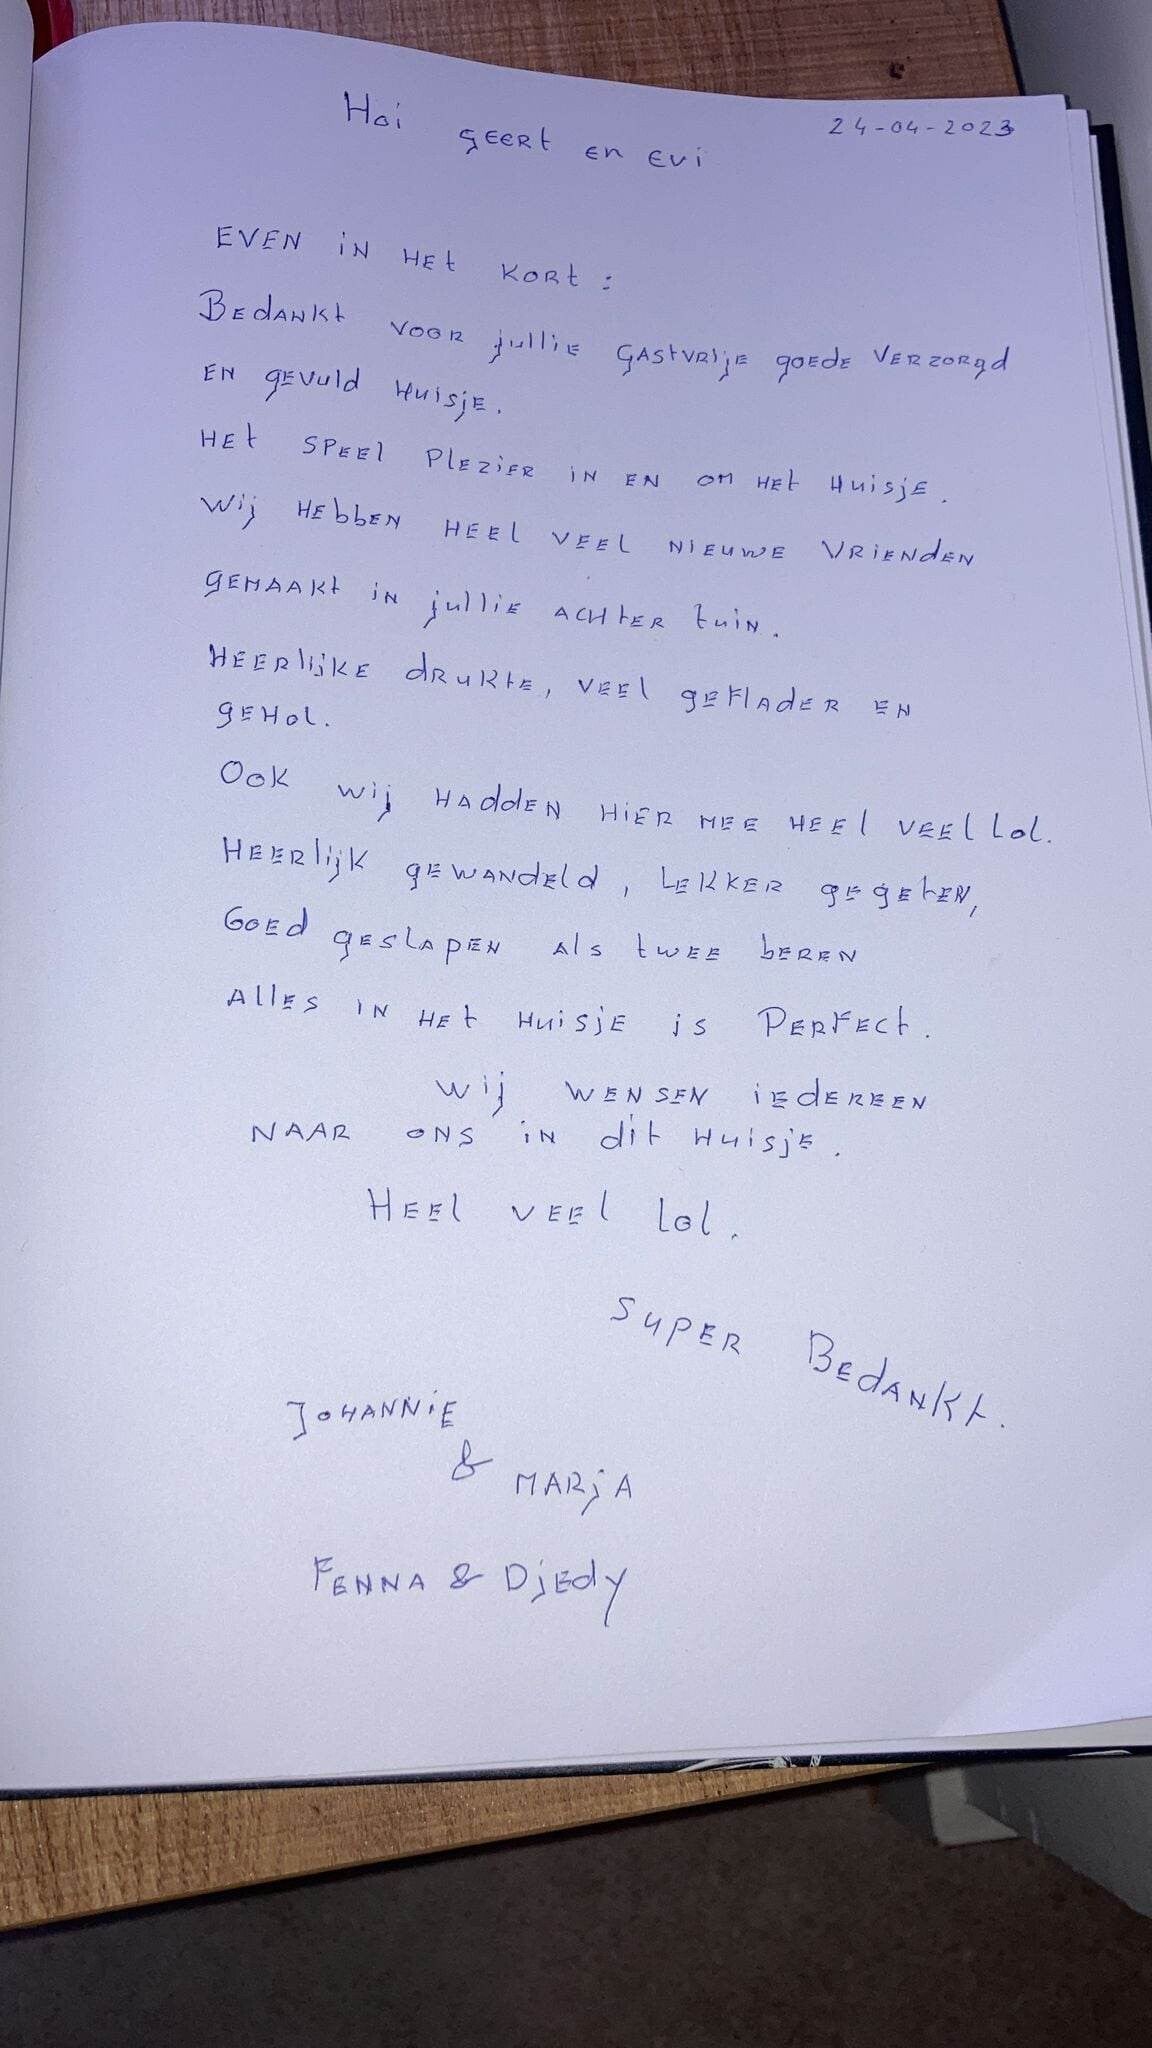 Hoi geert en evi
24-04-2023
EVEN iN HEt KORt :
BEdANKt VOOR jullIE GAStVRIjE gOEdE VERZORgd
EN gEVuld HuisjE.
HEt SPEEl PlEZiER IN EN OM HEt HuisjE.
Wij HEbbEN HEEl VEEl NIEUWE VRIENdEN
gEMAAKt iN jullIE ACHtER tuiN.
HEERlijKE dRUKtE, VEEl gEFlAdER EN
gEHOl.
OOK wij HAddEN HiER MEE HEEl VEEl lol.
HEERlijK gEWANdEld, LEKKER gEgEtEN,
GOEd gESlAPEN Als twEE bEREN
AllES IN HEt HuisjE is PERFECt.
Wij WENSEN iEdEREEN
NAAR ONS iN dit HuisjE.
HEEl VEEl lol.
SUPER BEdANKt.
JOHANNiE
& MARjA
FENNA & DjEdy